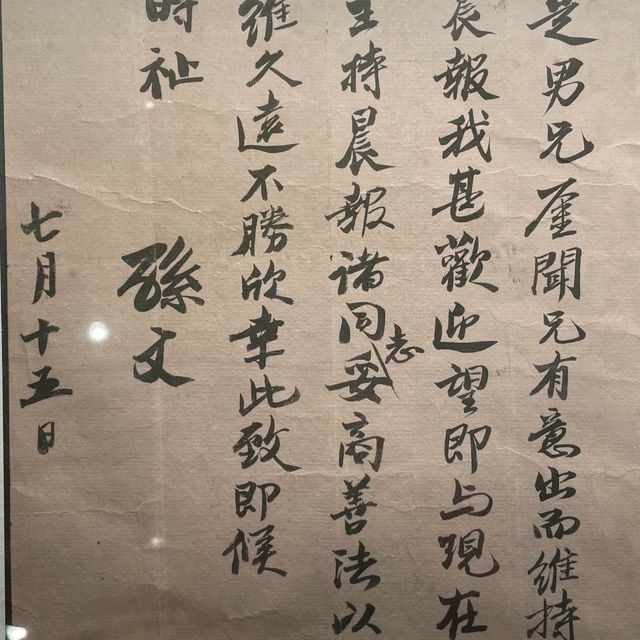 是男兄厪聞兄有意出而維持
晨報我甚歡迎望即与現在
主持晨報諸同志妥商善法以
維久遠不勝欣幸此致即候
時祉
孫文
七月十五日